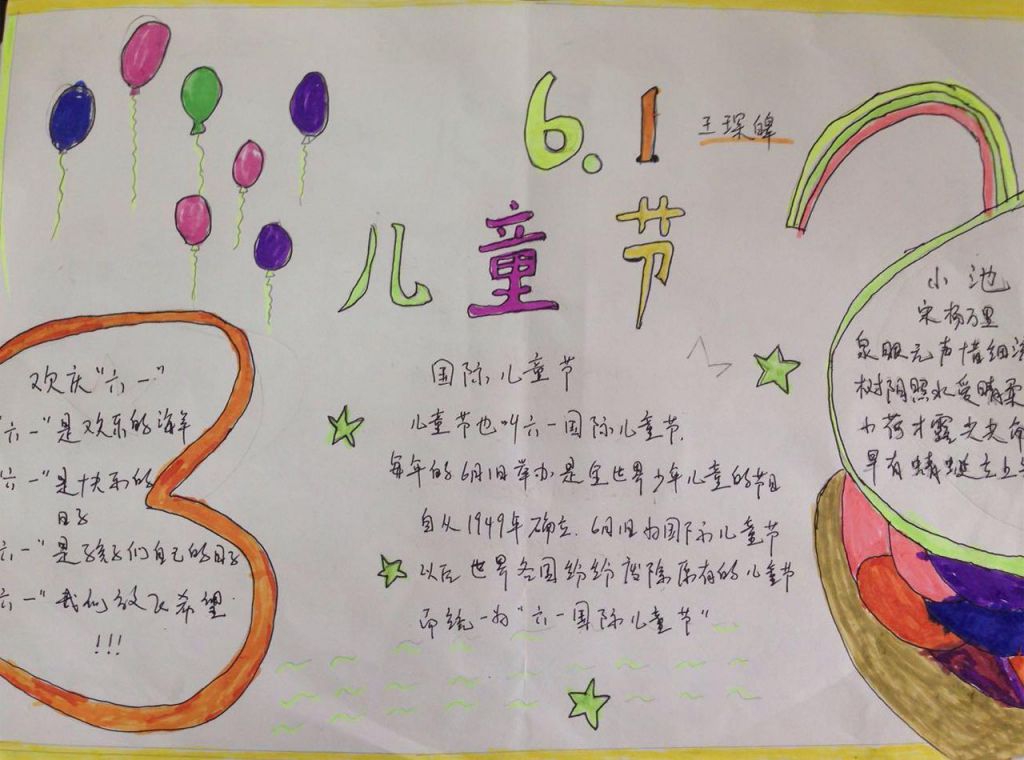 6.1
儿童节
欢庆"六一"
"六一"是欢乐的海洋
"六一"是快乐的
日子
六一"是孩子们自己的日子
六一"我们放飞希望
!!!
国际儿童节
儿童节也叫六一国际儿童节.
每年的6月1日举办是全世界少年儿童的节日
自从1949年确立.6月1日为国际儿童节
以后世界各国纷纷废除原有的儿童节
而统一为"六一国际儿童节"
小池
宋杨万里
泉眼无声惜细流
树阴照水爱晴柔
小荷才露尖尖角
早有蜻蜓立上头